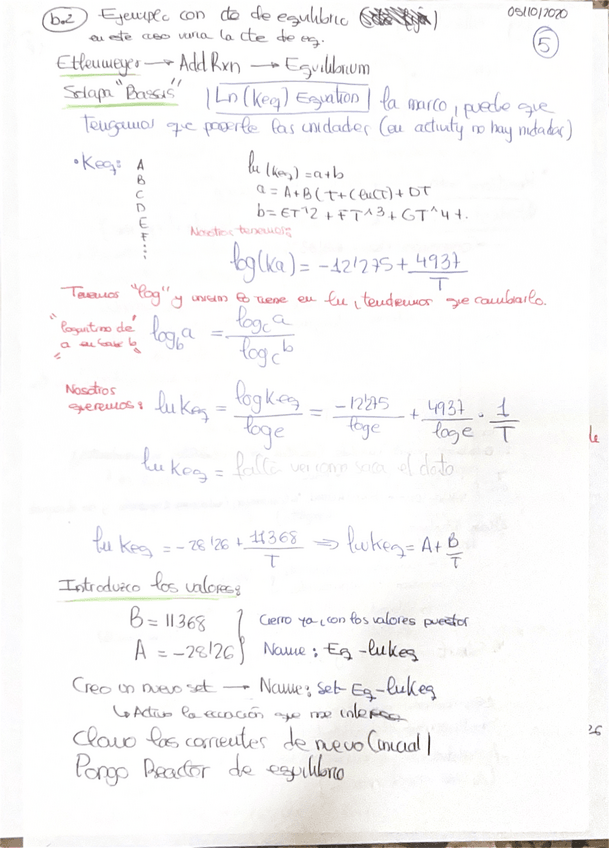 b.2) Ejemplo con cte de equilibrio 05/10/2020
en este caso varia la cte de eq. 5
Erlenmeyer → Add Rxn → Equilibrium
Solapa "Bassis" | Ln(Keq) Equation | la marco, puede que
tengamos que ponerle las unidades (en activity no hay
• Keq: A
B
C
D
E
F
⋮
ln(Keq) = a+b
a = A+B(T+C ln(T)+DT
b = ET^2 + FT^3 + GT^4 +.
Nosotros tenemos:
log(Ka) = -12'275 + 4937/T
Tenemos "log" y unisim lo tiene en ln, tendremos que cambiarlo.
"logaritmo de a en base b" log_b a = log_c a / log_c b
Nosotros queremos: ln Keq = log Keq / log e = -12'275 / log e + 4937 / log e · 1/T
ln Keq = falta ver como era el dato.
ln Keq = -28'26 + 11368/T ⇒ ln Keq = A + B/T
Introduzco los valores:
B = 11368 } Cierro ya, con los valores puestos
A = -28'26 } Name: Eq-lnKeq
Creo un nuevo set → Name: set-Eq-lnKeq
↳ Activo la ecuación que me interesa
Clavo las corrientes de nuevo (inicial)
Pongo Reactor de equilibrio
le
26